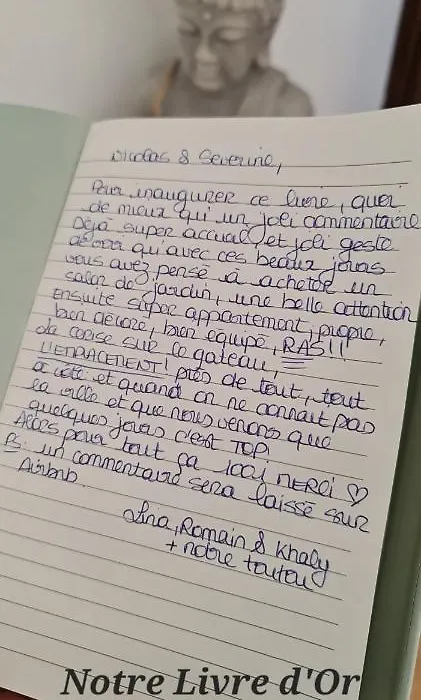 Nicolas & Severine,
Pour inaugurer ce livre, quoi
de mieux qu'un joli commentaire
Déjà super accueil, et joli geste
de voir qu'avec ces beaux jours
vous avez pensé à acheter un
salon de jardin, une belle attention
Ensuite super appartement, propre,
bien décoré, bien équipé, RAS!!
la cerise sur le gateau,
L'EMPLACEMENT! près de tout, tout
à côté et quand on ne connait pas
la ville et que nous venons que
quelques jours c'est TOP
Alors pour tout ça 1001 MERCI ♡
Ps: un commentaire sera laissé sur
Airbnb
Romain & Khaly
+ notre toutou
Notre Livre d'Or